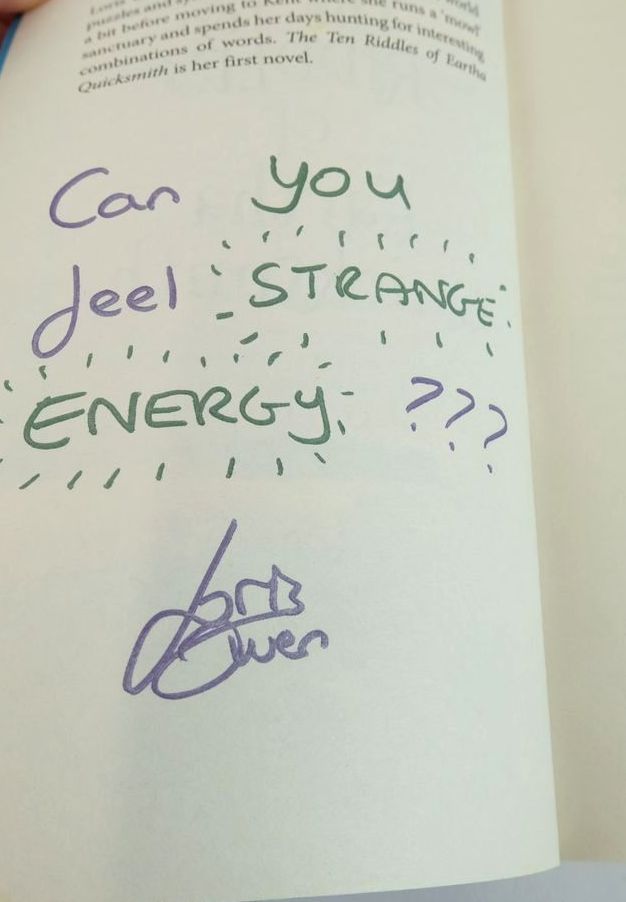 puzzles and
a bit before moving to Kent where she runs a 'mowl
sanctuary and spends her days hunting for interesting
combinations of words. The Ten Riddles of Eartha
Quicksmith is her first novel.
Can you
feel STRANGE
ENERGY ???
Loris
Owen